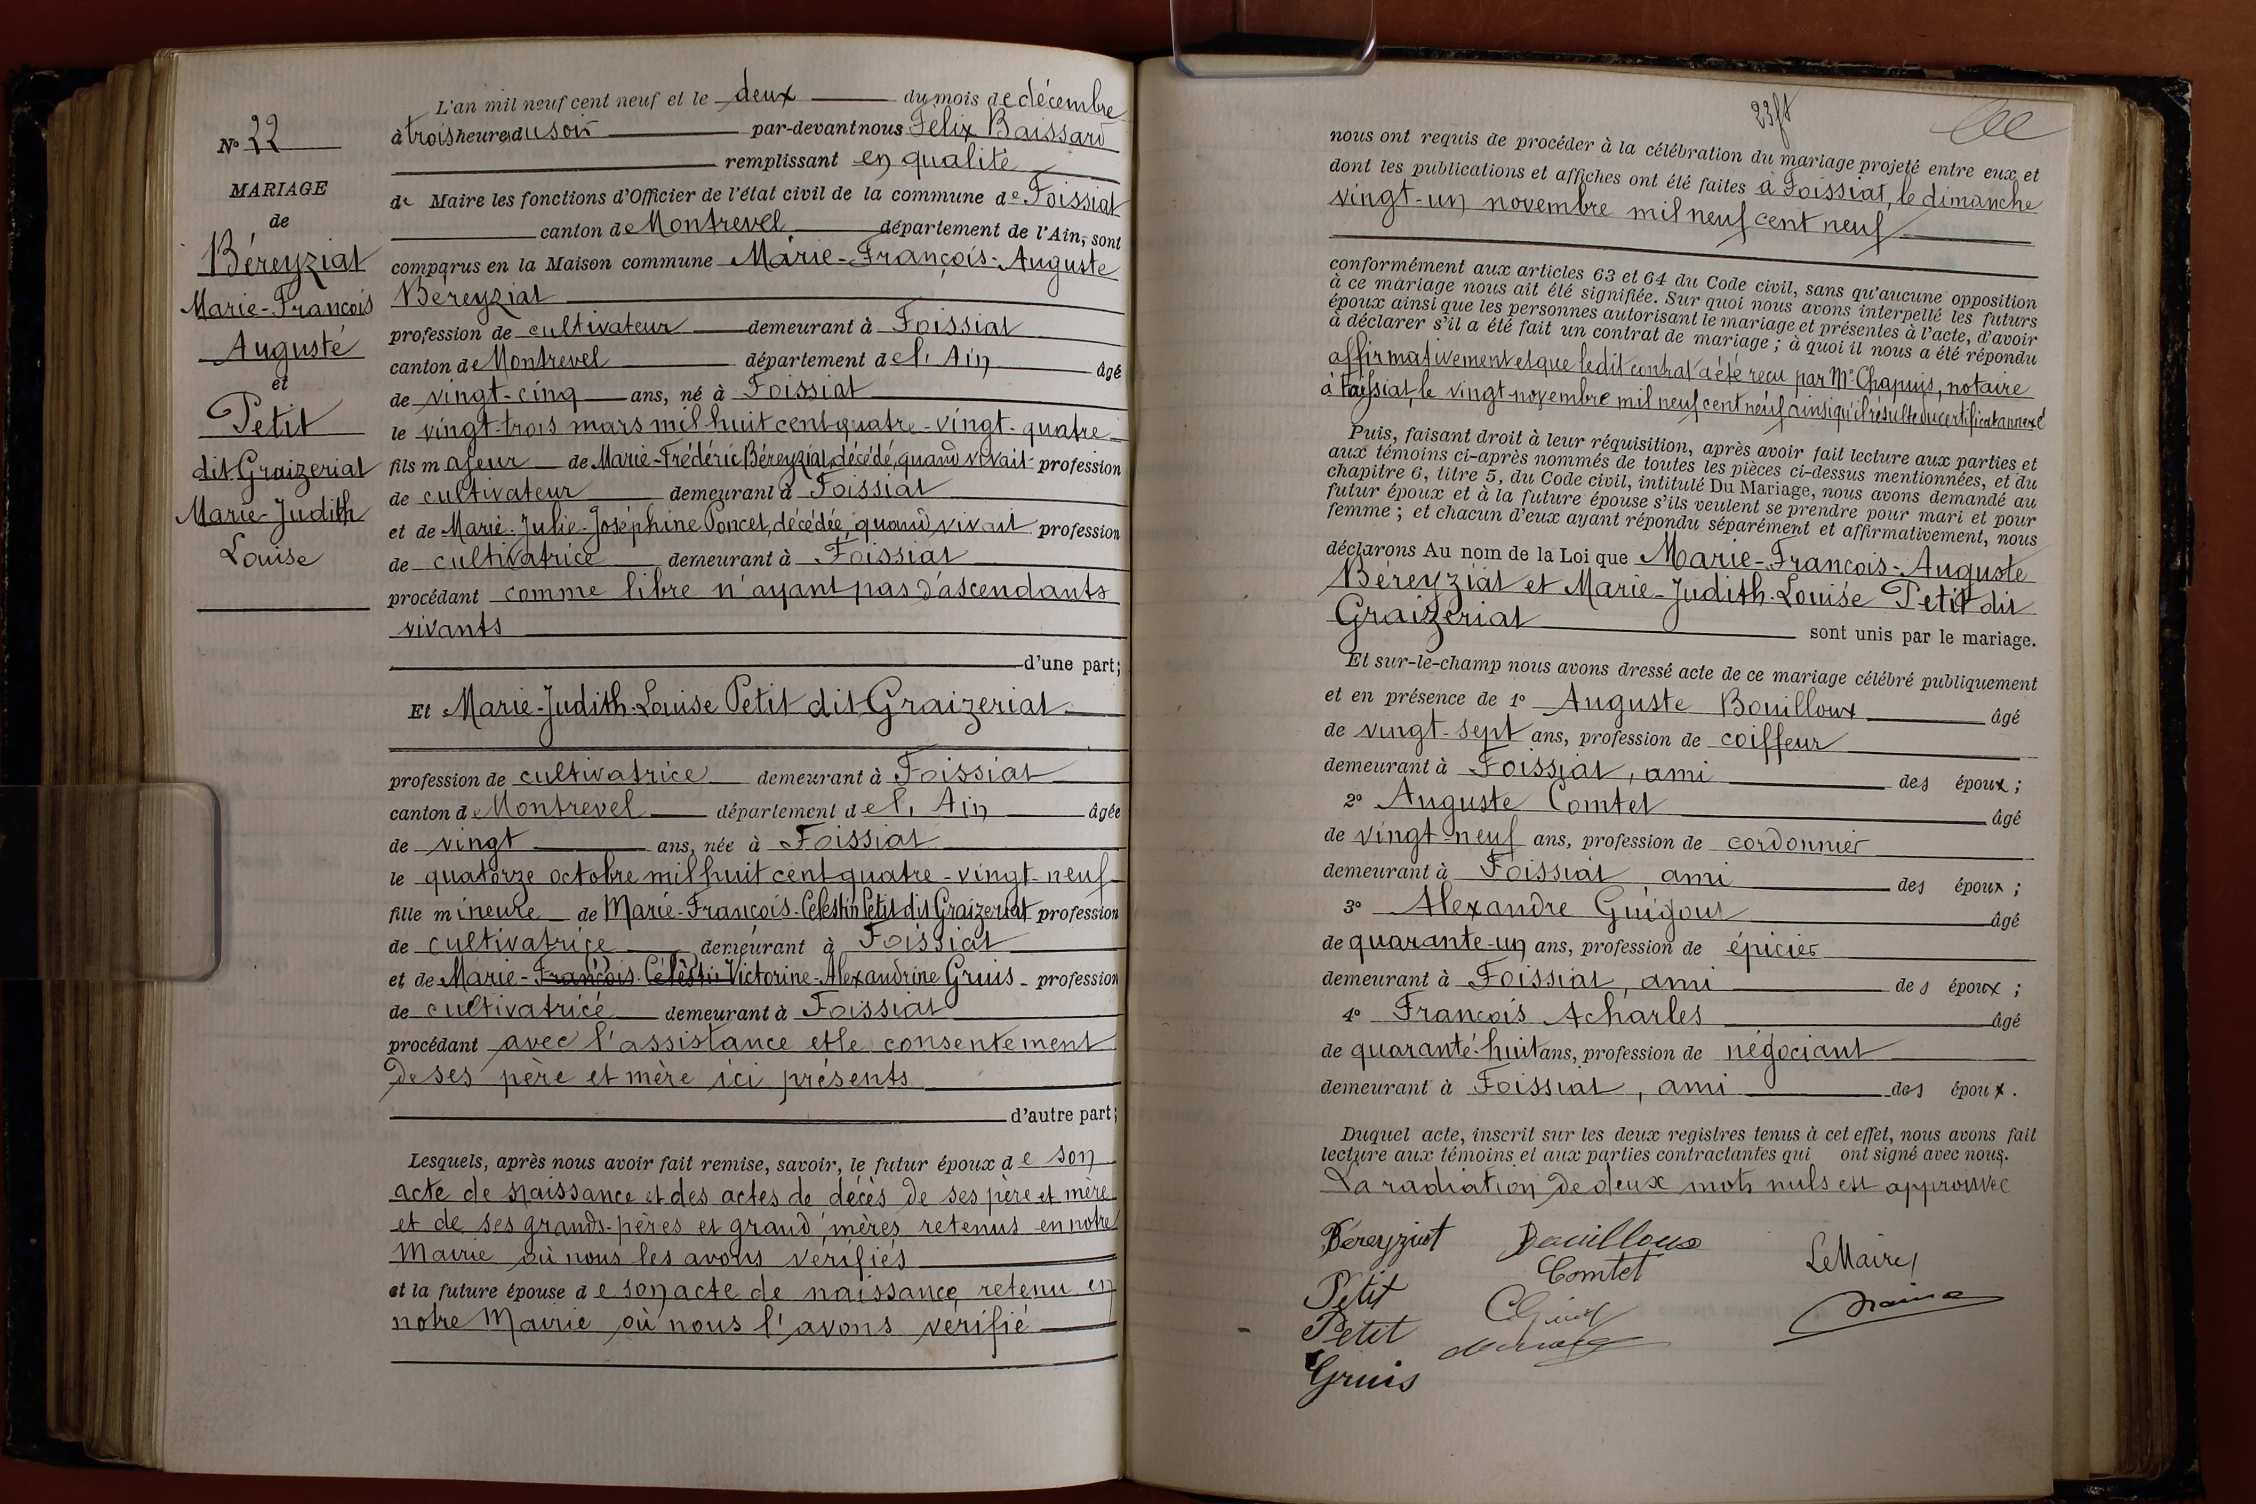 L'an mil neuf cent neuf et le deux du mois de décembre
à trois heures du soir par-devant nous Félix Baissard
remplissant en qualité
de Maire les fonctions d'Officier de l'état civil de la commune de Foissiat
canton de Montrevel département de l'Ain, sont
comparus en la Maison commune Marie-François-Auguste
Béreyziat
profession de cultivateur demeurant à Foissiat
canton de Montrevel département de l'Ain âgé
de vingt-cinq ans, né à Foissiat
le vingt-trois mars mil huit cent quatre-vingt-quatre
fils majeur de Marie-Frédéric Béreyziat, décédé, quand vivait profession
de cultivateur demeurant à Foissiat
et de Marie-Julie-Joséphine Poncet, décédée, quand vivait profession
de cultivatrice demeurant à Foissiat
procédant comme libre n'ayant pas d'ascendants
vivants
d'une part;
Et Marie-Judith-Louise Petit dit Graizeriat
profession de cultivatrice demeurant à Foissiat
canton de Montrevel département de l'Ain âgée
de vingt ans, née à Foissiat
le quatorze octobre mil huit cent quatre-vingt-neuf
fille mineure de Marie-François-Célestin Petit dit Graizeriat profession
de cultivatrice demeurant à Foissiat
et de Marie-François-Célestin Victorine-Alexandrine Gruis profession
de cultivatrice demeurant à Foissiat
procédant avec l'assistance et le consentement
de ses père et mère ici présents
d'autre part;
Lesquels, après nous avoir fait remise, savoir, le futur époux de son
acte de naissance et des actes de décès de ses père et mère
et de ses grands-pères et grand'mères retenus en notre
Mairie où nous les avons vérifiés
et la future épouse de son acte de naissance, retenu en
notre Mairie où nous l'avons vérifié
N° 22
MARIAGE
de
Béreyziat
Marie-François
Auguste
et
Petit
dit Graizeriat
Marie-Judith
Louise
nous ont requis de procéder à la célébration du mariage projeté entre eux et
dont les publications et affiches ont été faites à Foissiat, le dimanche
vingt-un novembre mil neuf cent neuf
conformément aux articles 63 et 64 du Code civil, sans qu'aucune opposition
à ce mariage nous ait été signifiée. Sur quoi nous avons interpellé les futurs
époux ainsi que les personnes autorisant le mariage et présentes à l'acte, d'avoir
à déclarer s'il a été fait un contrat de mariage ; à quoi il nous a été répondu
affirmativement et que ledit contrat a été reçu par Me Chapuis, notaire
à Foissiat, le vingt novembre mil neuf cent neuf ainsi qu'il résulte du certificat annexé
Puis, faisant droit à leur réquisition, après avoir fait lecture aux parties et
aux témoins ci-après nommés de toutes les pièces ci-dessus mentionnées, et du
chapitre 6, titre 5, du Code civil, intitulé Du Mariage, nous avons demandé au
futur époux et à la future épouse s'ils veulent se prendre pour mari et pour
femme ; et chacun d'eux ayant répondu séparément et affirmativement, nous
déclarons Au nom de la Loi que Marie-François-Auguste
Béreyziat et Marie-Judith-Louise Petit dit
Graizeriat sont unis par le mariage.
Et sur-le-champ nous avons dressé acte de ce mariage célébré publiquement
et en présence de 1° Auguste Bouilloux âgé
de vingt-sept ans, profession de coiffeur
demeurant à Foissiat, ami des époux ;
2° Auguste Comtet âgé
de vingt-neuf ans, profession de cordonnier
demeurant à Foissiat ami des époux ;
3° Alexandre Guigout âgé
de quarante-un ans, profession de épicier
demeurant à Foissiat, ami des époux ;
4° François Acharles âgé
de quarante-huit ans, profession de négociant
demeurant à Foissiat, ami des époux.
Duquel acte, inscrit sur les deux registres tenus à cet effet, nous avons fait
lecture aux témoins et aux parties contractantes qui ont signé avec nous.
La radiation de deux mots nuls est approuvée
Béreyziat Bouilloux Le Maire
Petit Comtet
Petit
Gruis